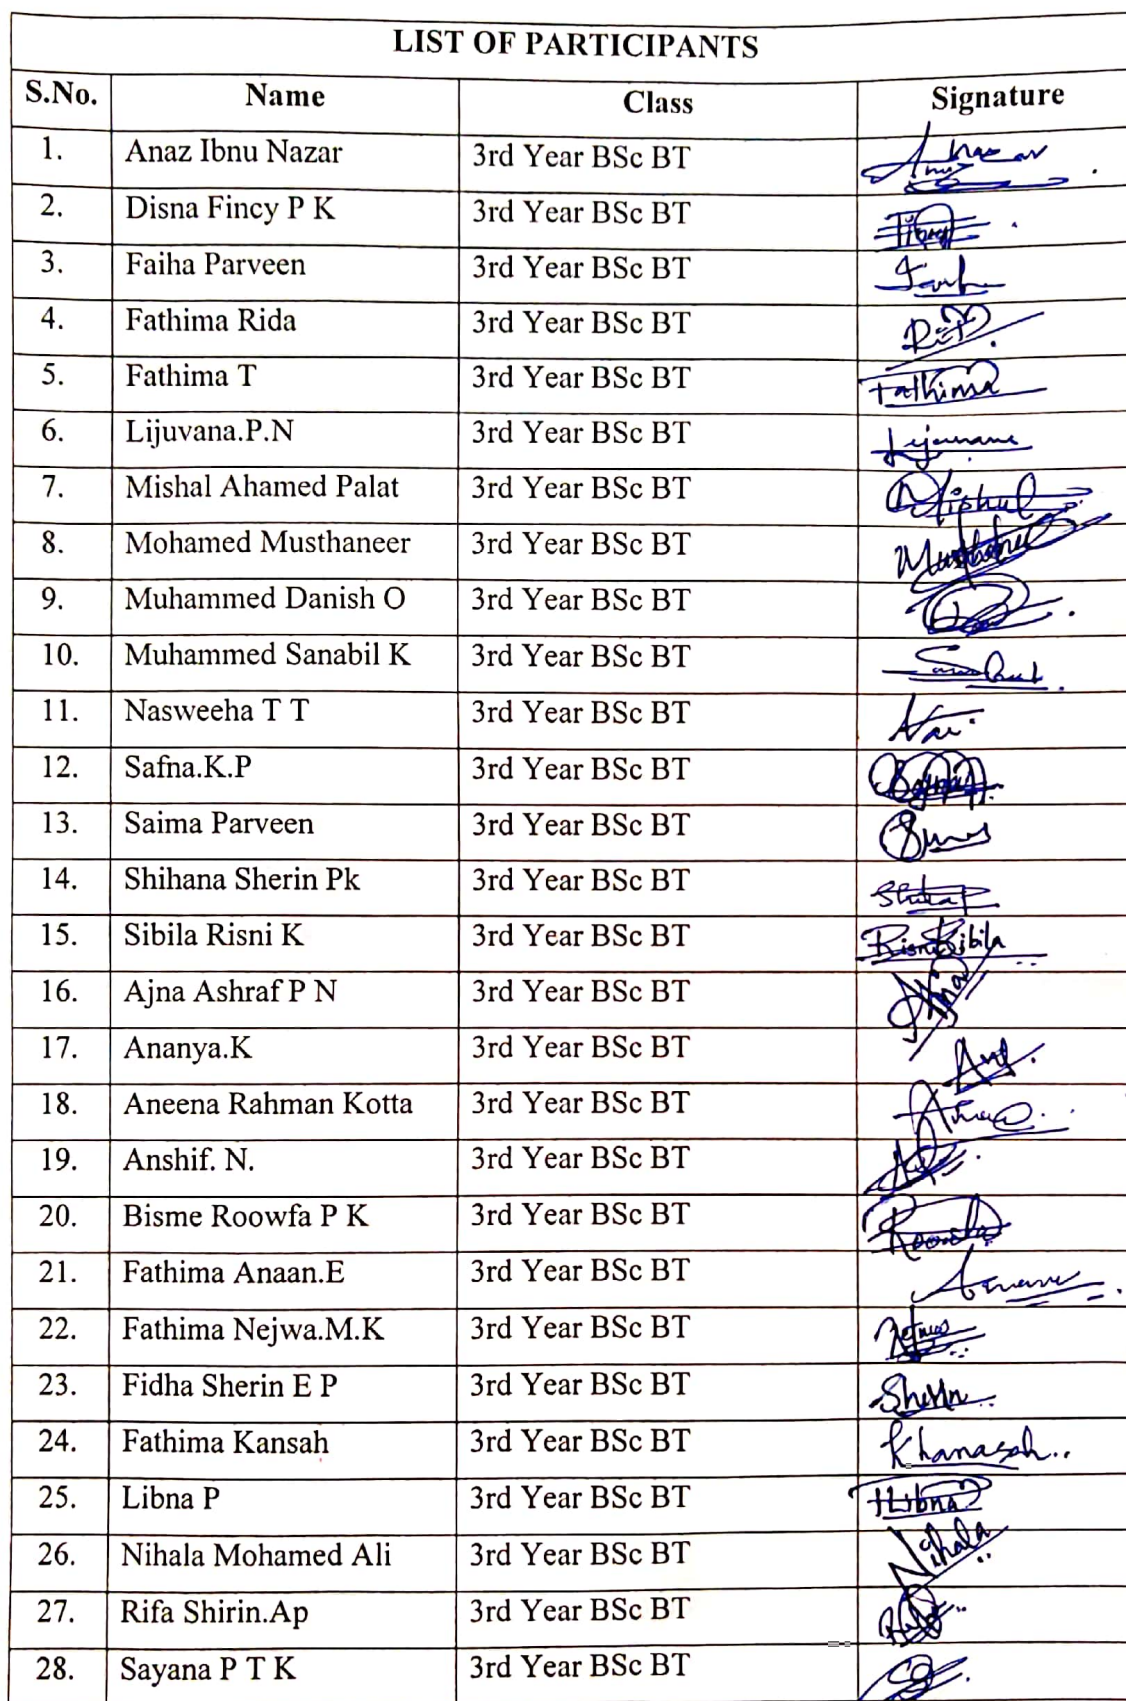 LIST OF PARTICIPANTS
S.No. Name Class Signature
1. Anaz Ibnu Nazar 3rd Year BSc BT
2. Disna Fincy P K 3rd Year BSc BT
3. Faiha Parveen 3rd Year BSc BT
4. Fathima Rida 3rd Year BSc BT
5. Fathima T 3rd Year BSc BT Fathima
6. Lijuvana.P.N 3rd Year BSc BT
7. Mishal Ahamed Palat 3rd Year BSc BT
8. Mohamed Musthaneer 3rd Year BSc BT
9. Muhammed Danish O 3rd Year BSc BT
10. Muhammed Sanabil K 3rd Year BSc BT
11. Nasweeha T T 3rd Year BSc BT
12. Safna.K.P 3rd Year BSc BT
13. Saima Parveen 3rd Year BSc BT
14. Shihana Sherin Pk 3rd Year BSc BT
15. Sibila Risni K 3rd Year BSc BT
16. Ajna Ashraf P N 3rd Year BSc BT
17. Ananya.K 3rd Year BSc BT
18. Aneena Rahman Kotta 3rd Year BSc BT
19. Anshif. N. 3rd Year BSc BT
20. Bisme Roowfa P K 3rd Year BSc BT
21. Fathima Anaan.E 3rd Year BSc BT
22. Fathima Nejwa.M.K 3rd Year BSc BT
23. Fidha Sherin E P 3rd Year BSc BT
24. Fathima Kansah 3rd Year BSc BT Khanasah..
25. Libna P 3rd Year BSc BT
26. Nihala Mohamed Ali 3rd Year BSc BT Nihala
27. Rifa Shirin.Ap 3rd Year BSc BT
28. Sayana P T K 3rd Year BSc BT